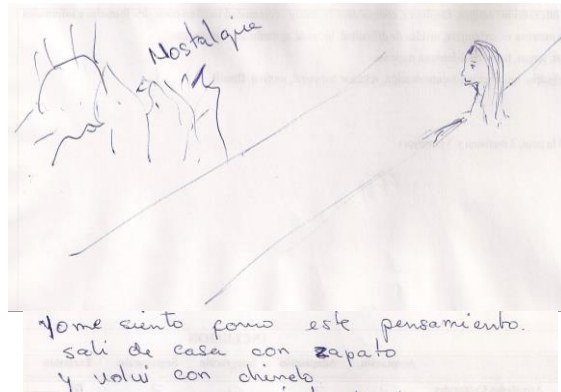 Nostalgia
Yo me siento como este pensamiento.
sali de casa con zapato
y volvi con